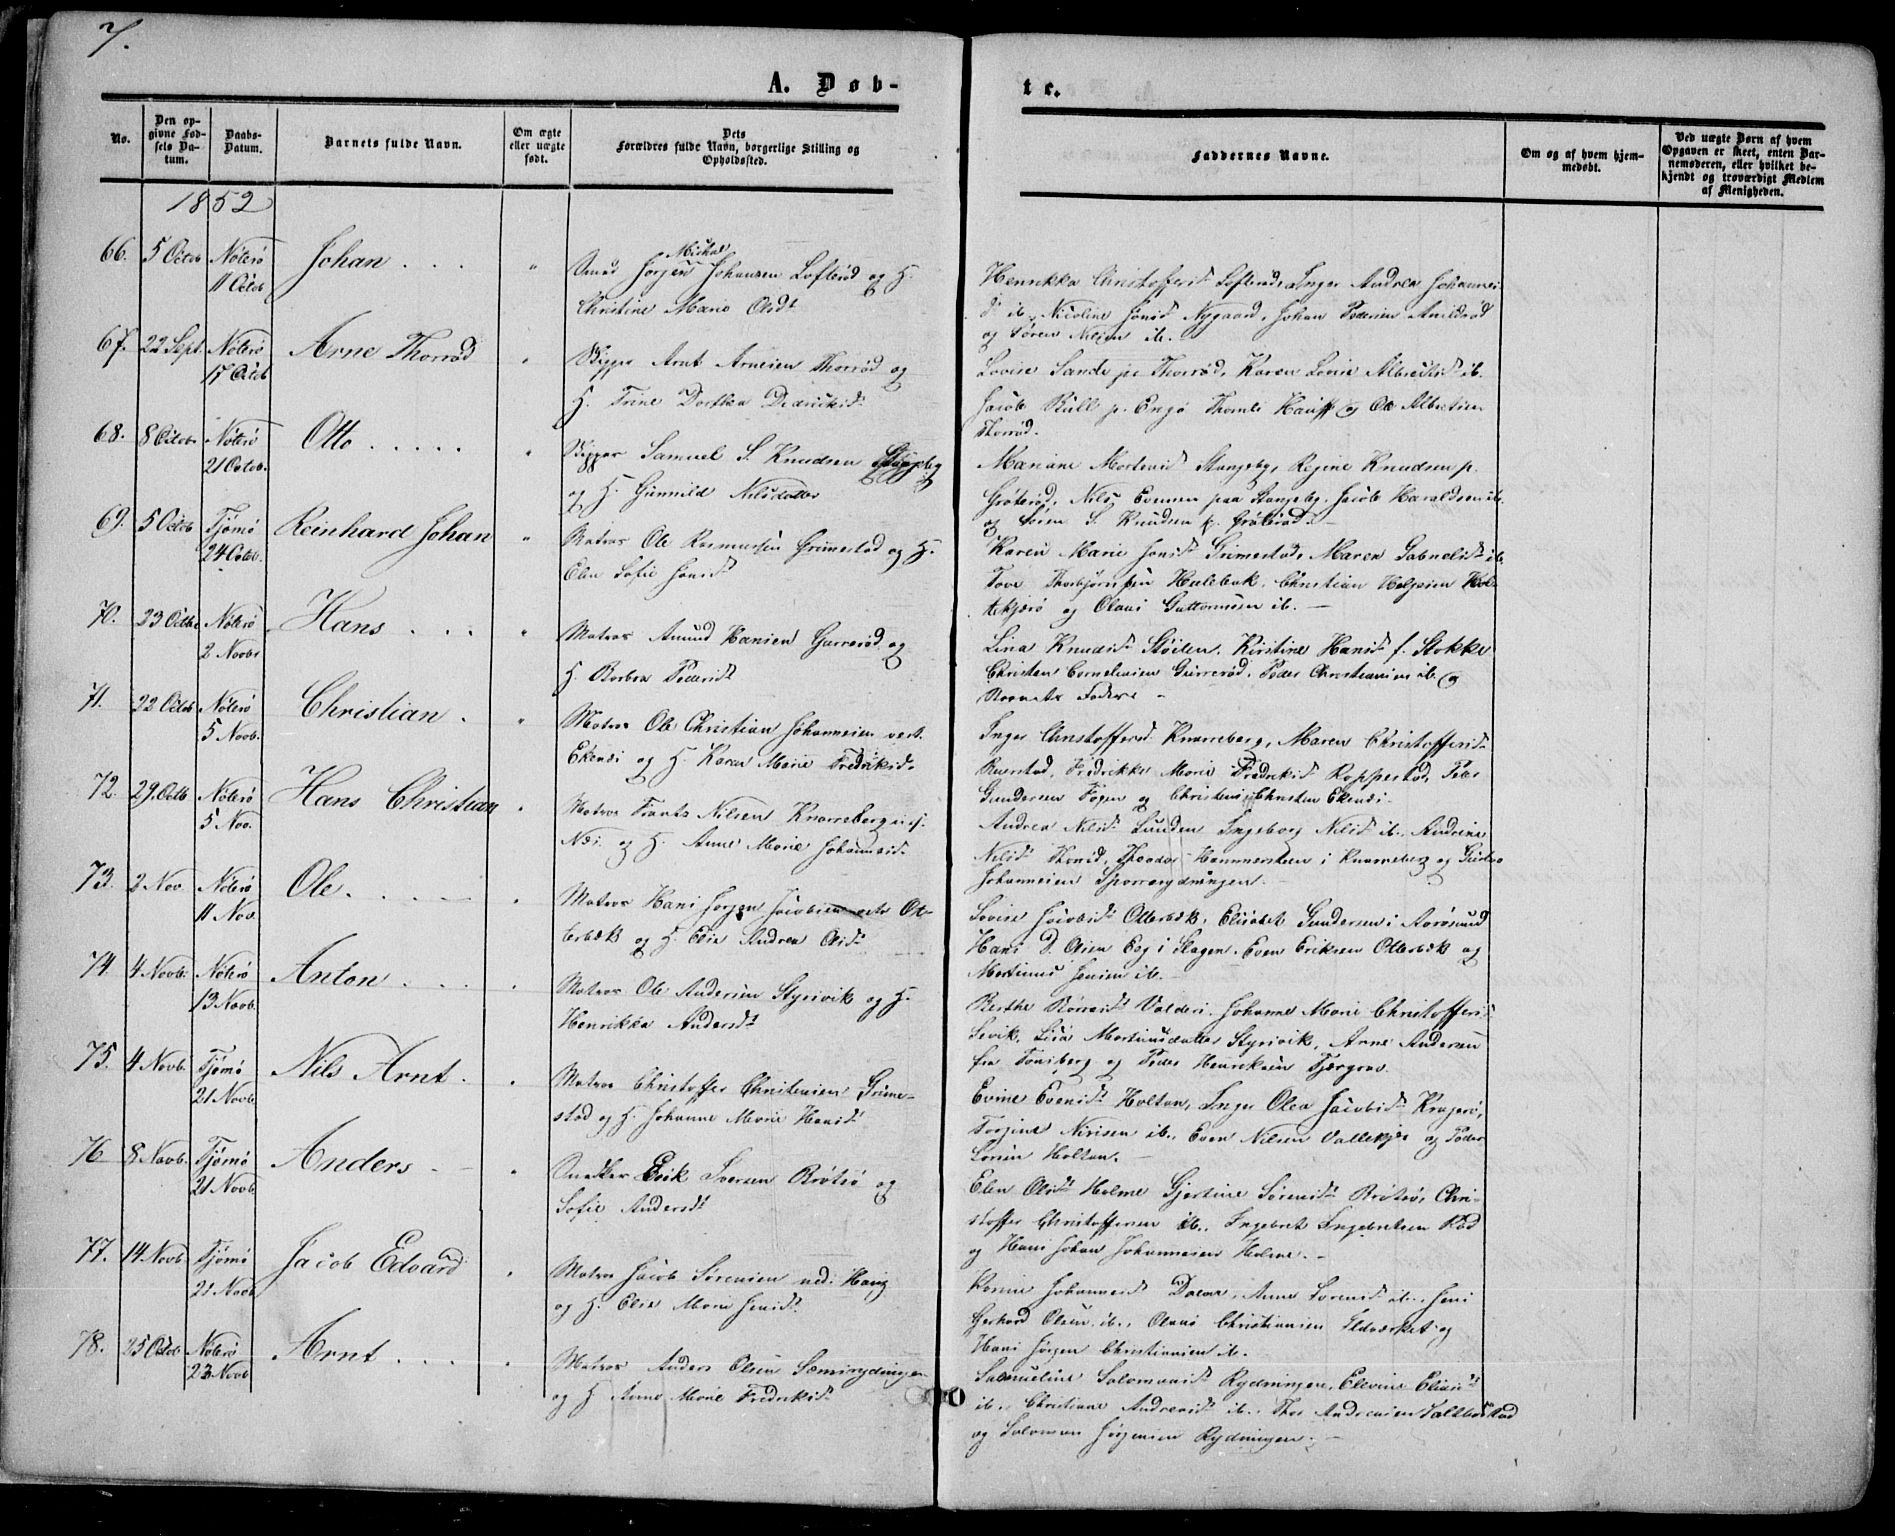 7.
A. Døb-
te.
No.
Den op-
givne Fød-
sels Da-
tum.
Daabs-
Datum.
Barnets fulde Navn.
Om ægte
eller uægte
født.
Dets
Forældres fulde Navn, borgerlige Stilling og
Opholdssted.
Faddernes Navne.
Om og af hvem hjem-
medøbt.
Ved uægte Børn af hvem
Opgaven er skeet, enten Bar-
nemoderen, eller hvilket be-
kjendt og troværdigt Medlem
af Menigheden.
1852
66. 5 Octob Nøterø
11 Octob
Johan . . . "
Michael
Smed Jørgen Johansen Lofterød og H.
Christine Marie Olsdt
Henrikka Christoffersdt Lofterød, Inger Andrea Johannes
dt ib, Nicoline Jonsdt Nygaard, Johan Pedersen
og Søren Nilsen ib.
67. 22 Sept. Nøterø
17 Octob
Arne Thorrød "
Skipper Arnt Arnesen Thorrød og
H. Trine Dorthea Didriksdt
Lovise Sande paa Thorrød, Karen Lovise Albretsdt ib.
Jacob Bull p. Engø Thomle Hauff og Ole Albertsen
Thorrød.
68. 8 Octob Nøterø
21 Octob.
Otto . . . . . "
Skipper Samuel S. Knudsen
og H. Gunnild Nilsdatter
Mariane Mortensdt Stangeby, Regine Knudsen p.
Grøterød, Nils Evensen paa Stangeby, Jacob Haraldsen ib.
og Søren S. Knudsen p. Grøterød.
69. 5 Octob Tjømø
24 Octob.
Reinhard Johan "
Matros Ole Rasmussen Grimestad og H.
Elen Sofie Jonsdt
Karen Marie Jonsdt Grimestad, Maren Gabrielsdt ib,
Tove Thorbjørnsen Hulebak, Christian Helgesen Hol-
tekjærø og Olaus Guttormsen ib. —
70. 23 Octbr Nøterø
2 Novbr
Hans . . . . "
Matros Amund Hansen Gurrerød og
H. Barbra Pedersdt
Lina Knudsdt Støilen, Kirstine Hansdt f. Stokke
Christen Cornelius­sen Gurrerød, Peder Christiansen ib og
Barnets Fader. —
71. 22 Octob Nøterø
5 Novb.
Christian . "
Matros Ole Christian Johannesen vest.
Ekenæs og H. Karen Marie Fredriksdt
Inger Christoffersd. Knarreberg, Maren Christoffersdt
Buerstad, Fredrikke Marie Fredriksdt Roppestad, Peder
Gundersen Føgen og Christen Christen Ekenæs.
72. 29. Octb Nøterø
5 Nov.
Hans Christian "
Matros Frants Nilsen Knarreberg
Næs og H. Anne Marie Johannesdt
Andrea Nilsdt Lunden, Ingeborg Nilsdt ib., Andrine
Nilsdt Thorød, Theodor Hammersteen i Knarreberg og Gustav
Johannesen Sporrerydningen.
73. 2 Nov Nøterø
11 Nov.
Ole. . . . . — "
Matros Hans Jørgen Jacobsen Ot-
terbæk og H. Elise Andrea Olsdt
Lovise Jacobsdt Otterbæk, Elisabet Gundersen i Aarøsund
Hans D. Olsen Eeg i Slagen, Even Eriksen Otterbæk og
Martinus Jensen ib. —
74. 4 Novb: Nøterø
13 Novb.
Anton . . . . "
Matros Ole Andersen Styrsvik og H.
Henrikka Andersdt
Berthe Børresdt Valderi, Johanne Marie Christoffersdt
Sevik, Lisa Martinusdatter Styrsvik, Arne Andersen
fra Tønsberg og Peder Henriksen Tjærgrav.
75. 4 Novb. Tjømø
21 Novb.
Nils Arnt . "
Matros Christoffer Christensen Grime-
stad og H. Johanne Marie Hansdt
Evine Evensdt Holtan, Inger Olea Jacobsdt Kragerø,
Torgine Nirisen ib., Even Nilsen Vallekjær og Peder
Larsen Holtan.
76 8 Novb. Tjømø
21 Novb.
Anders — — "
Snedker Erik Iversen Brøtsø og
Sofie Andersdt
Elen Olsdt Holme, Gjertine Sørensdt Brøtsø, Chri-
stoffer Christoffersen ib., Ingebret Ingebretsen Rød
og Hans Johan Johannesen Holme. —
77. 14 Novb. Tjømø
21 Novb
Jacob Edvard "
Matros Jacob Sørensen ned: Haug
og H. Elise Marie Jensdt
Karine Johannesdt Dalen, Anne Sørensdt ib., Jens
Gerhard Olsen ib., Olaus Christiansen Ildværket og
Hans Jørgen Christiansen ib.
78. 25 Octob Nøterø
23 Novb
Arnt . . . . "
Matros Anders Olsen Semsrydningen
og H. Anne Marie Fredriksdt
Salomeline Salomonsdt Rydningen, Elevine Eliasdt
ib., Christiane Andreasdt ib., Thor Andreassen Saltbostad
og Salomon Jørgensen Rydningen. —